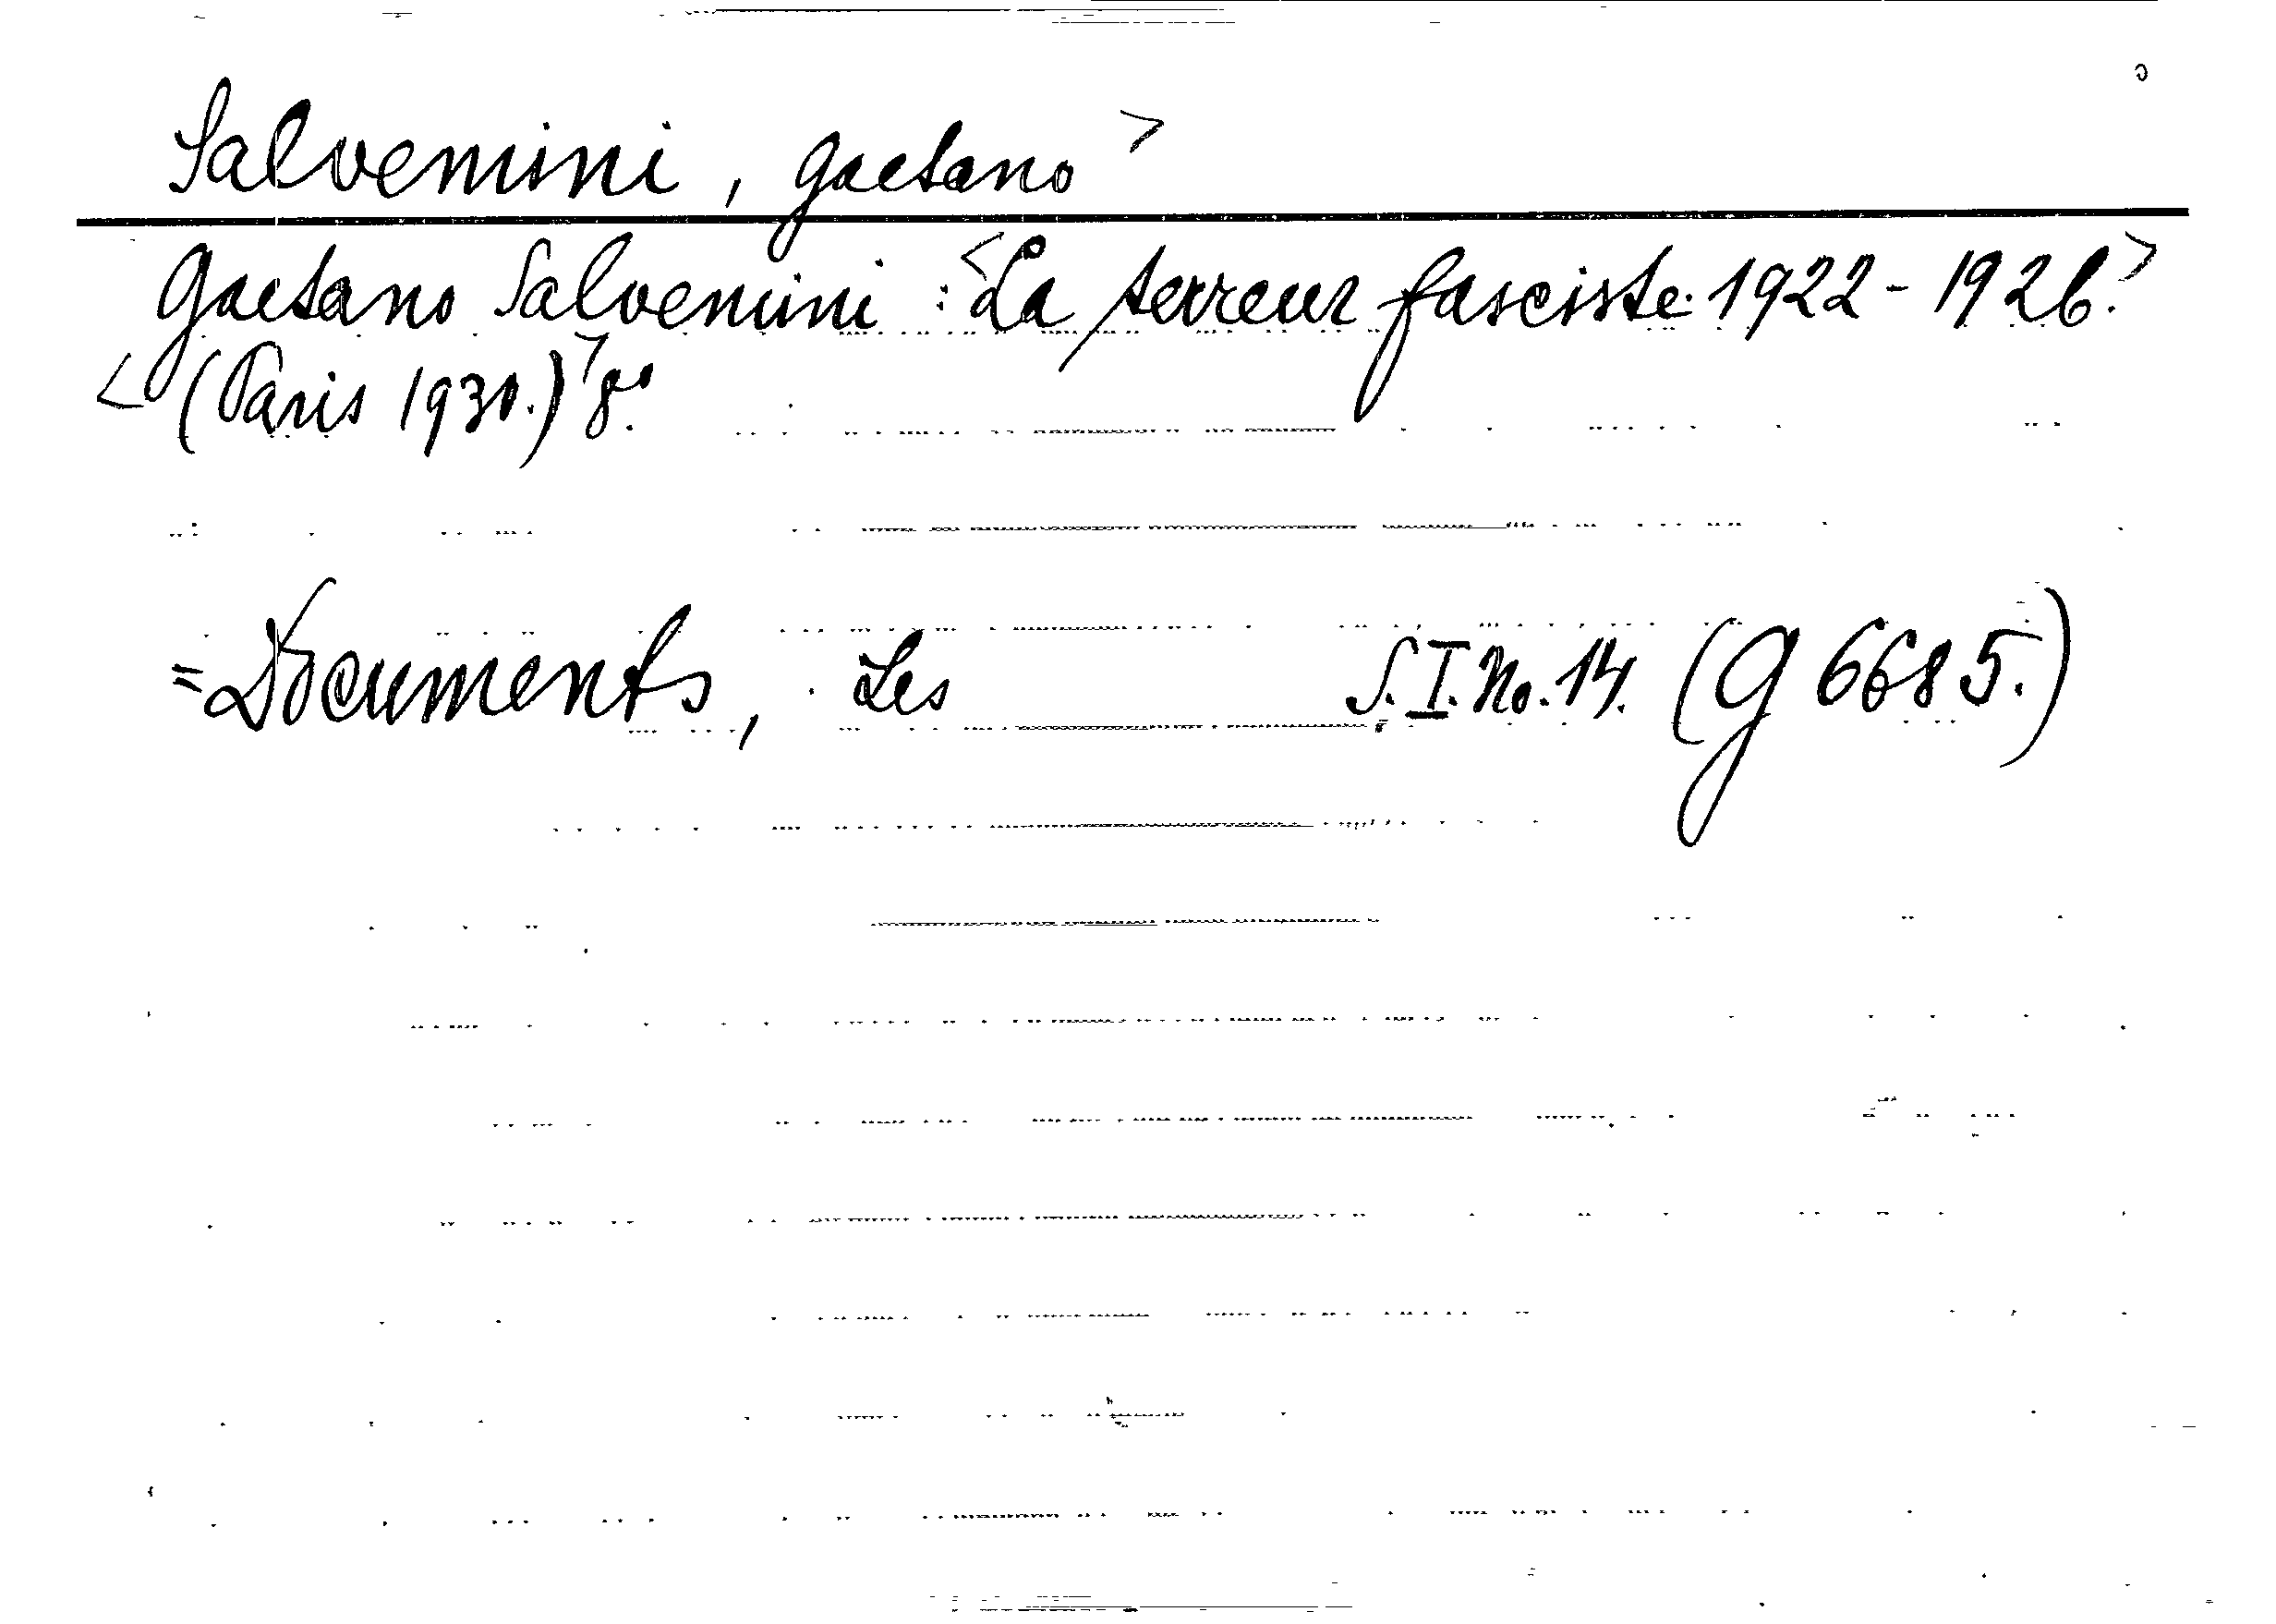 Salvemini, Gaetano>
Gaetano Salvemini: <La terreur fasciste. 1922-1926.>
<(Paris 1930.)> 8°.
=Documents, Les S.I.No.14. (G 6685.)